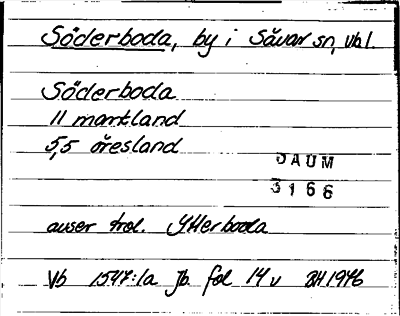 Söderboda, by i Sävar sn, Vbl.
Söderboda
11 markland
5,5 öresland
DAUM
3166
avser trol. Ytterboda
Vb 1547:1a Jb fol 14 v BH 1946